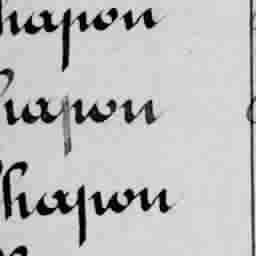 hapon
hapon
hapon